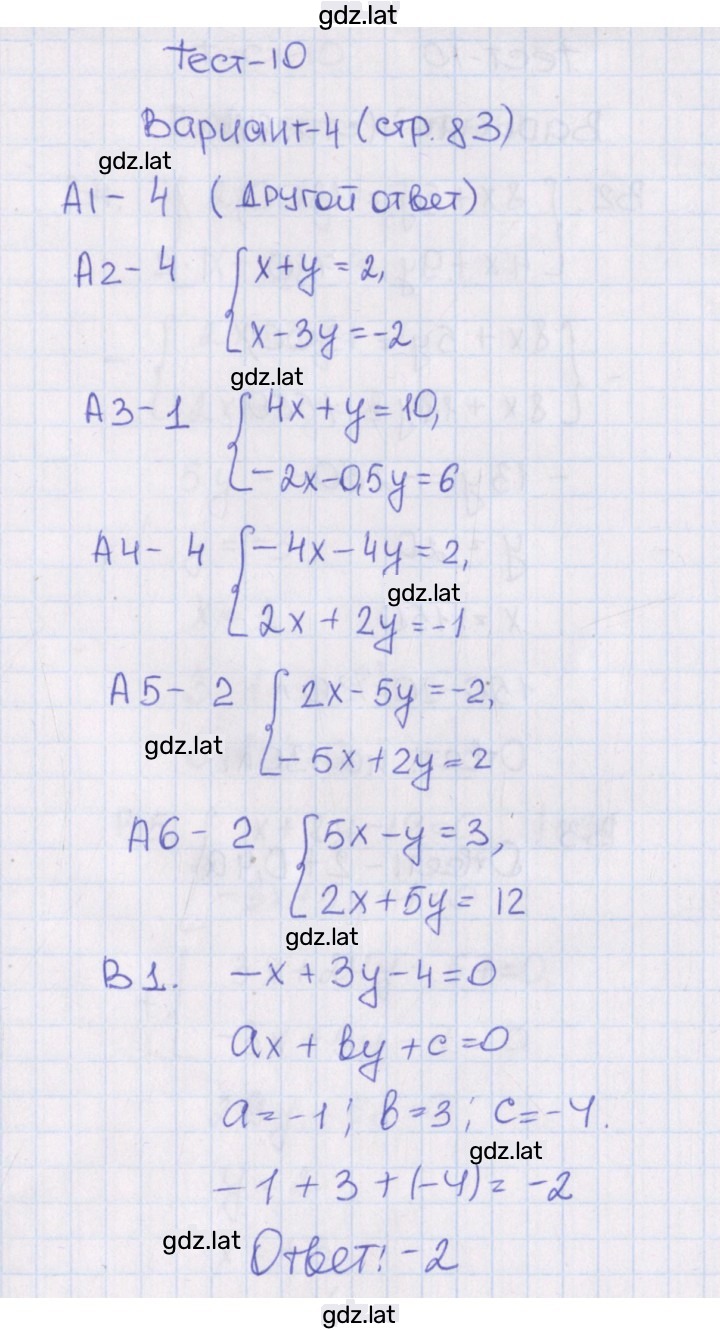 gdz.lat
Тест-10
Вариант-4 (стр. 83)
gdz.lat
А1- 4 (Другой ответ)
А2- 4 { x+y=2,
x-3y=-2
gdz.lat
А3-1 { 4x+y=10,
-2x-0,5y=6
А4- 4 { -4x-4y=2,
gdz.lat
2x+2y=-1
А5- 2 { 2x-5y=-2,
gdz.lat
-5x+2y=2
А6- 2 { 5x-y=3,
2x+5y= 12
gdz.lat
В1. -x+3y-4=0
ax+вy+c=0
a=-1; в=3; c=-4.
gdz.lat
-1+3+(-4)= -2
gdz.lat
Ответ: -2
gdz.lat